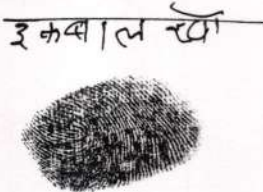 इकबाल खाँ